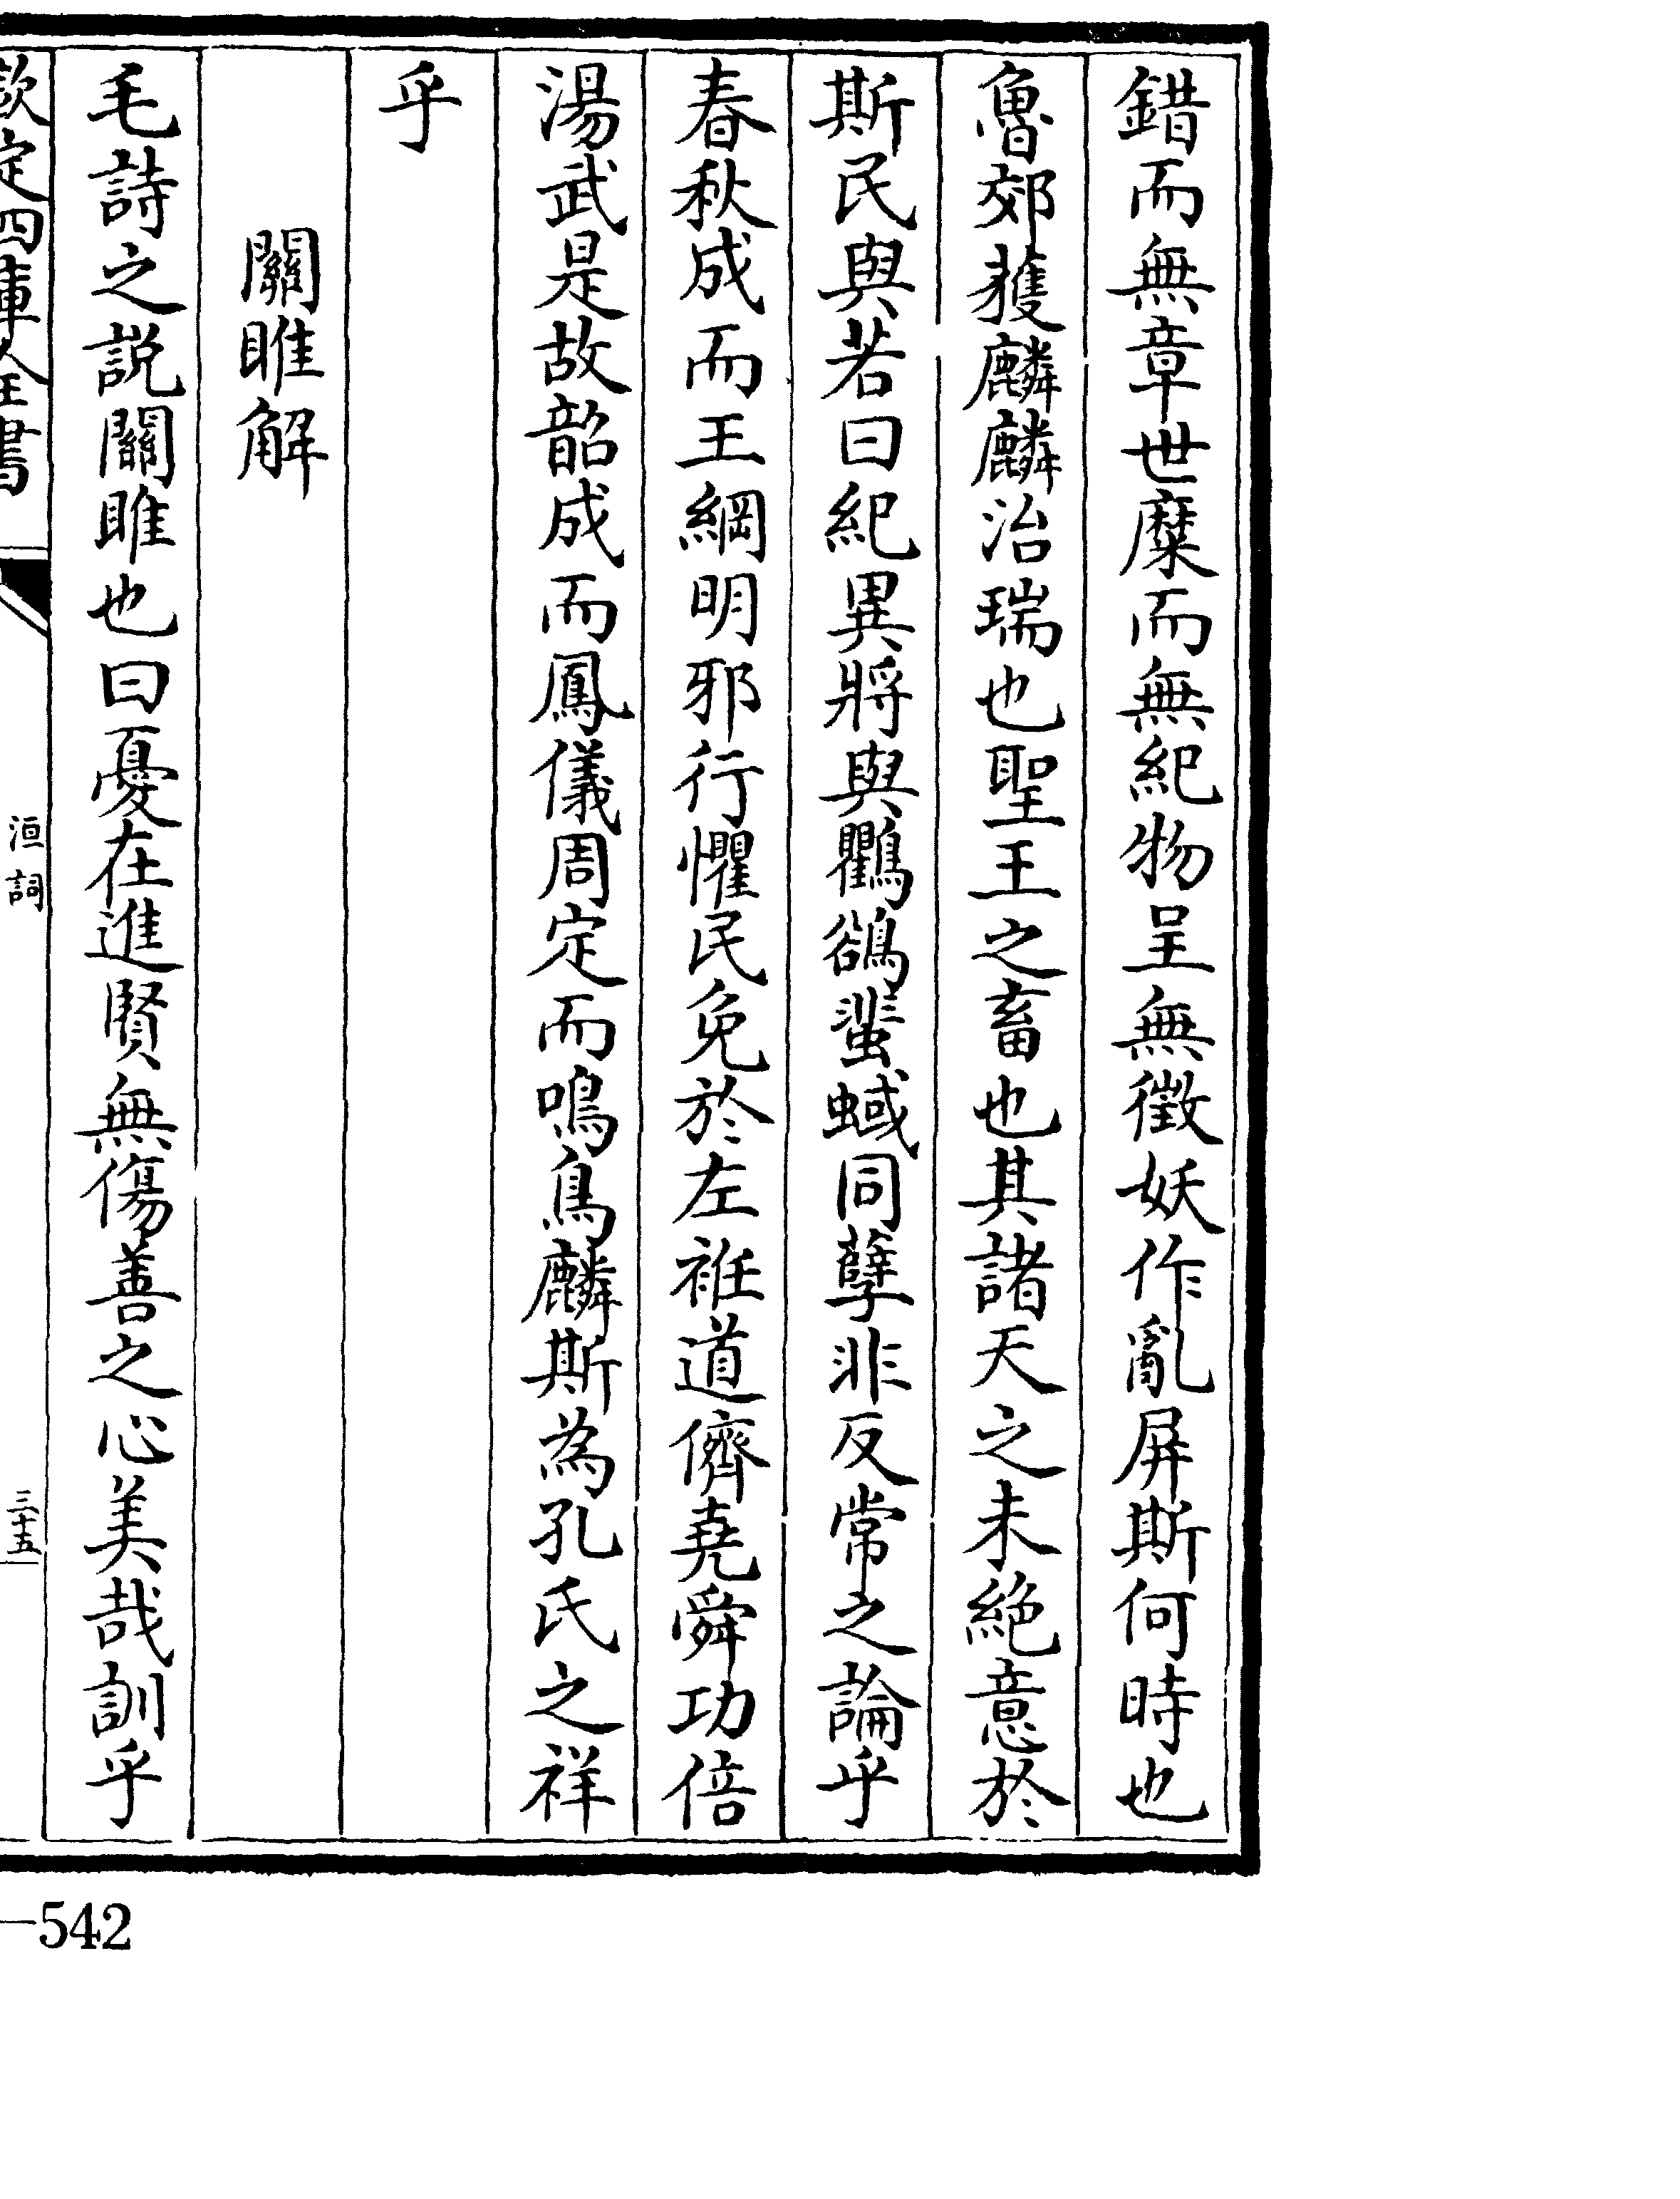 錯而無章世糜而無紀物呈無徵妖作亂屏斯何時也
魯郊獲麟麟治瑞也聖王之畜也其諸天之未絕意於
斯民與若曰紀異將與鸜鵒蜚蜮同孽非反常之論乎
春秋成而王綱明邪行懼民免於左袵道儕堯舜功倍
湯武是故韶成而鳳儀周定而鳴鳥麟斯為孔氏之祥
乎
關雎解
毛詩之説關雎也曰憂在進賢無傷善之心美哉訓乎
欽定四庫全書
洹詞
三十五
—542